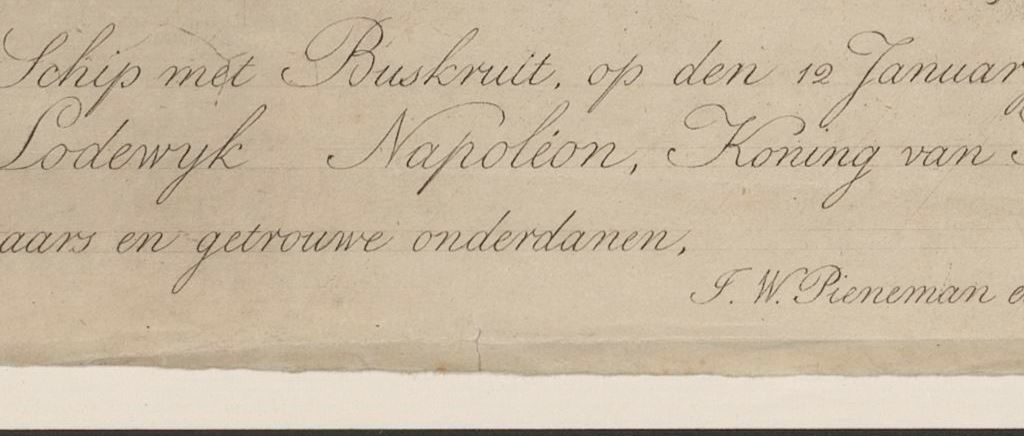 Schip met Buskruit, op den 12 Januar
Lodewyk Napoléon, Koning van
aars en getrouwe onderdanen,
J. W. Pieneman e